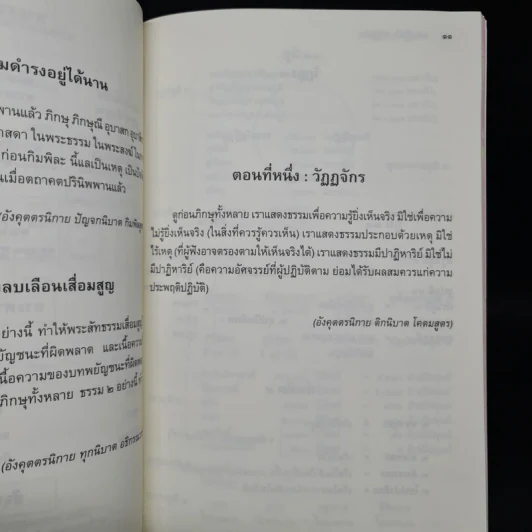 มดำรงอยู่ได้นาน
พานแล้ว ภิกษุ ภิกษุณี อุบาสก
าสดา ในพระธรรม ในพระสงฆ์
ก่อนกิมพิละ นี้แลเป็นเหตุ
นเมื่อตถาคตปรินิพพานแล้ว
(อังคุตตรนิกาย ปัญจกนิบาต
ลบเลือนเสื่อมสูญ
อย่างนี้ ทำให้พระสัทธรรมเสื่อมสูญ
พยัญชนะที่ผิดพลาด และเนื้อความ
นื้อความของบทพยัญชนะที่ผิดพลาด
ภิกษุทั้งหลาย ธรรม ๒ อย่างนี้
(อังคุตตรนิกาย ทุกนิบาต
๑๑
ตอนที่หนึ่ง : วัฏฏจักร
ดูก่อนภิกษุทั้งหลาย เราแสดงธรรมเพื่อความรู้ยิ่งเห็นจริง มิใช่เพื่อความ
ไม่รู้ยิ่งเห็นจริง (ในสิ่งที่ควรรู้ควรเห็น) เราแสดงธรรมประกอบด้วยเหตุ มิใช่
ไร้เหตุ (ที่ผู้ฟังอาจตรองตามให้เห็นจริงได้) เราแสดงธรรมมีปาฏิหาริย์ มิใช่ไม่
มีปาฏิหาริย์ (คือความอัศจรรย์ที่ผู้ปฏิบัติตาม ย่อมได้รับผลสมควรแก่ความ
ประพฤติปฏิบัติ)
(อังคุตตรนิกาย ติกนิบาต โคตมสูตร)